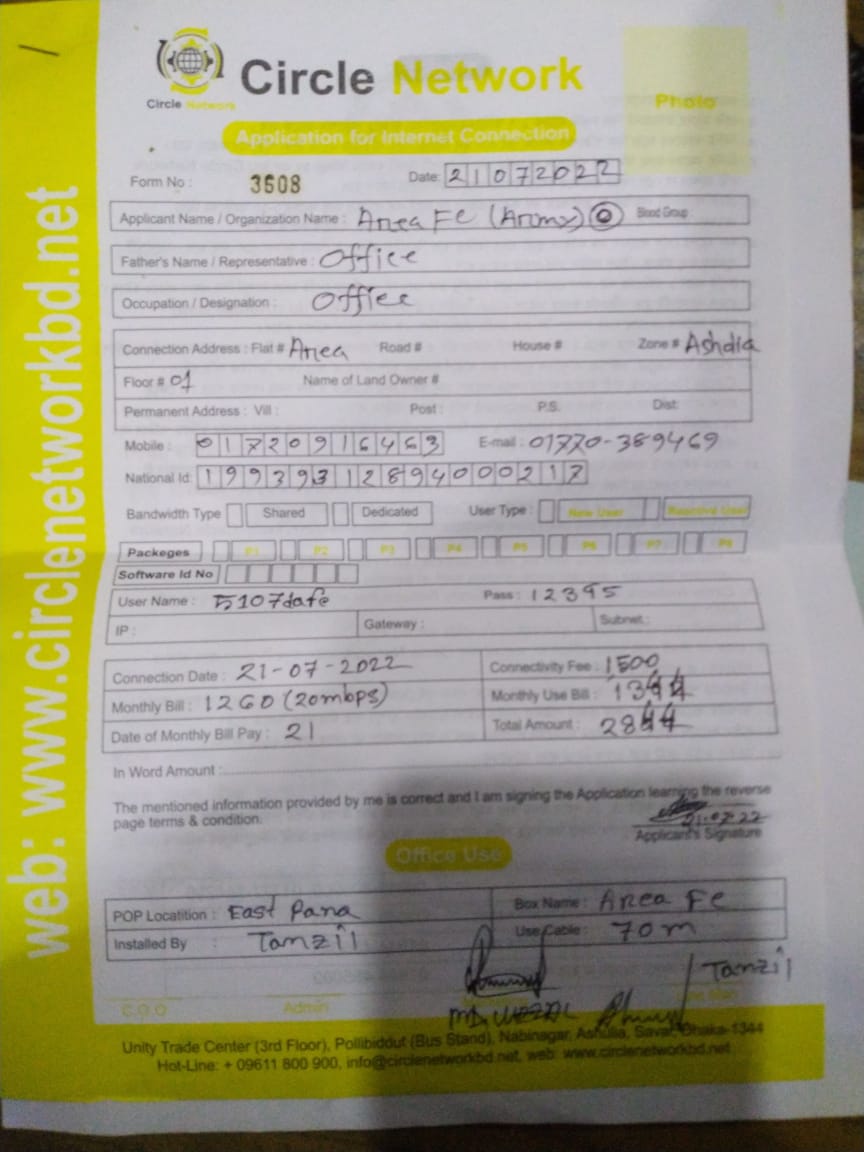 Circle Network
Circle Network
Photo
Application for Internet Connection
Form No : 3608 Date: 21072022
Applicant Name / Organization Name : Area FE (Army) Blood Group
Father's Name / Representative : Office
Occupation / Designation : Office
Connection Address : Flat # Area Road # House # Zone # Ashdia
Floor # 01 Name of Land Owner #
Permanent Address : Vill : Post : P.S. Dist:
Mobile : 01720916463 E-mail : 01770-389469
National Id: 19939312894000217
Bandwidth Type Shared Dedicated User Type : New User
Packeges P1 P2 P3 P4 P5 P6 P7 P8
Software Id No
User Name : 5107dafe Pass : 12395
IP : Gateway : Subnet :
Connection Date : 21-07-2022 Connectivity Fee : 1500
Monthly Bill : 1260 (20mbps) Monthly Use Bill : 1344
Date of Monthly Bill Pay : 21 Total Amount : 2844
In Word Amount :
The mentioned information provided by me is correct and I am signing the Application learning the reverse
page terms & condition.
21.07.22
Applicant's Signature
Office Use
POP Locatition : East Para Box Name : Area Fe
Installed By : Tamzil Use Cable : 70m
Tamzil
C.O.O Admin
Unity Trade Center (3rd Floor), Pollibiddut (Bus Stand), Nabinagar, Ashulia, Savar, Dhaka-1344
Hot-Line: + 09611 800 900, info@circlenetworkbd.net, web: www.circlenetworkbd.net
web: www.circlenetworkbd.net